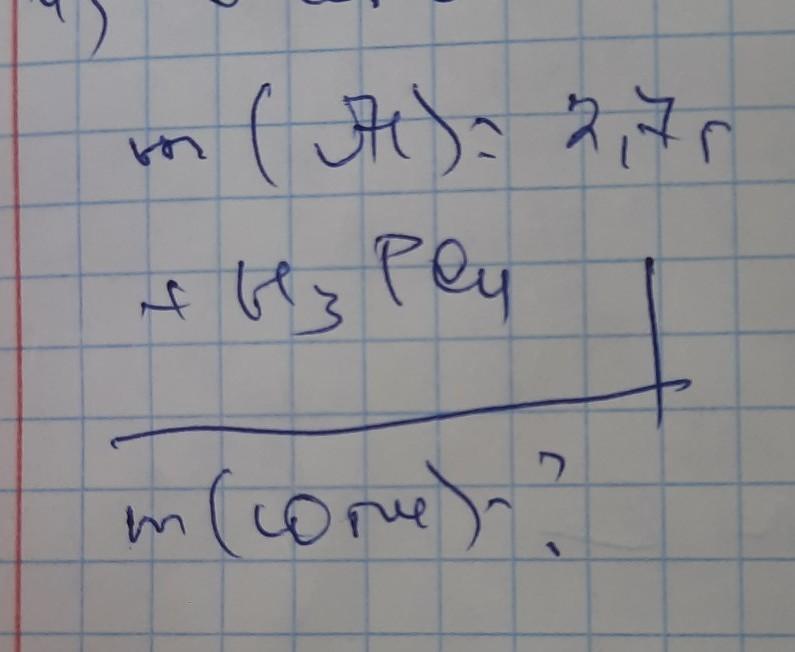 m (Al) = 2,7 г
+ H₃PO₄
m (соли) - ?